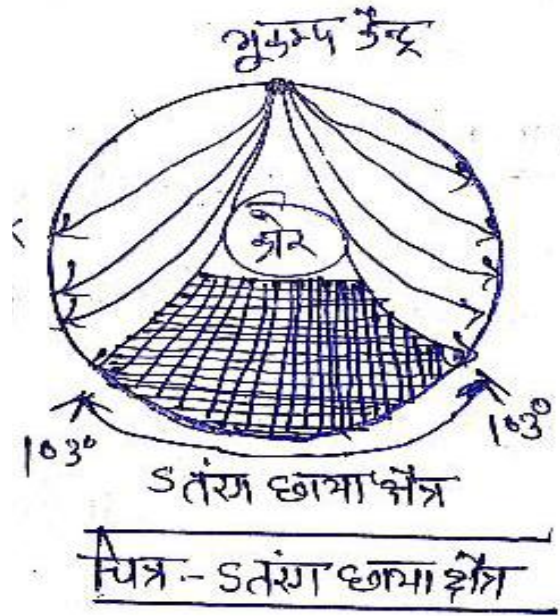 भूकम्प केन्द्र
कोर
103°
103°
S तंरग छाया क्षैत्र
चित्र - S तंरग छाया क्षैत्र